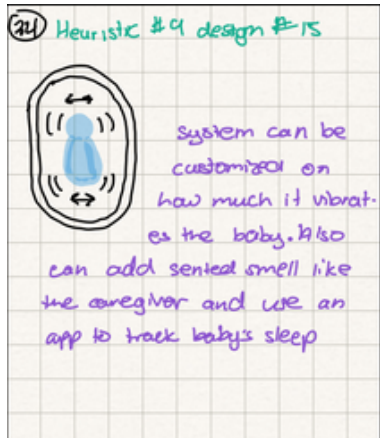 24 Heuristic #9 design #15
system can be
customized on
how much it vibrat-
es the baby. Also
can add sented smell like
the caregiver and use an
app to track baby's sleep